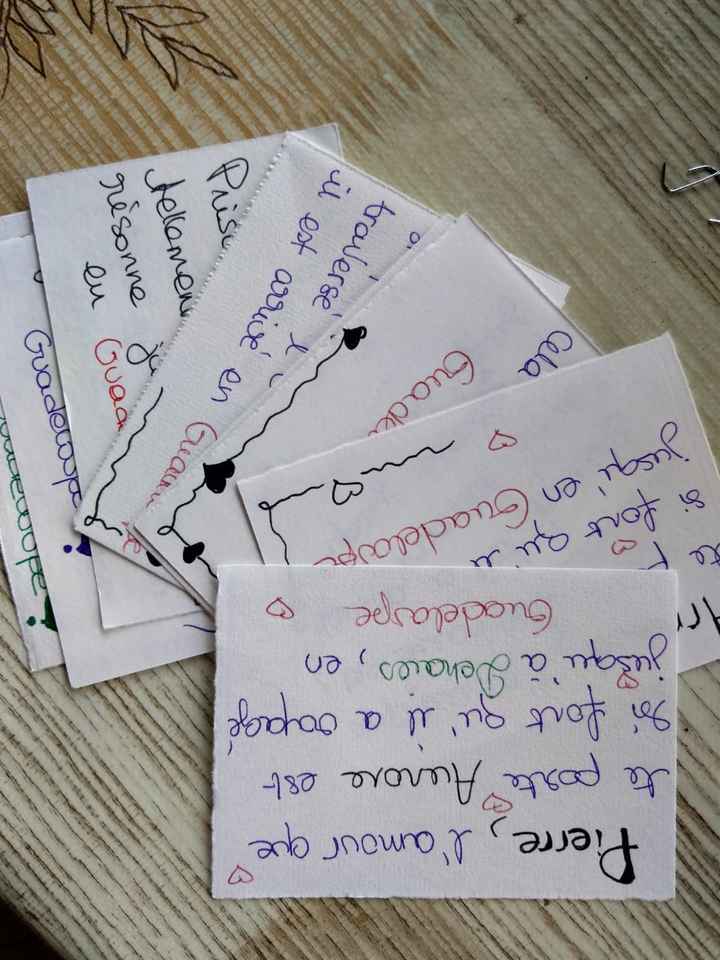 Pierre, l'amour que
te porte Aurore est-
si fort qu'il a voyagé
jusqu'à Dehaies, en
Guadeloupe
si fort qu'il
jusqu'en
Guadeloupe
Cela
Guade
traversé
il est arrivé en
Gua
Pris
tellemen
résonne
en
Gua
Guadeloupe
uadeloupe